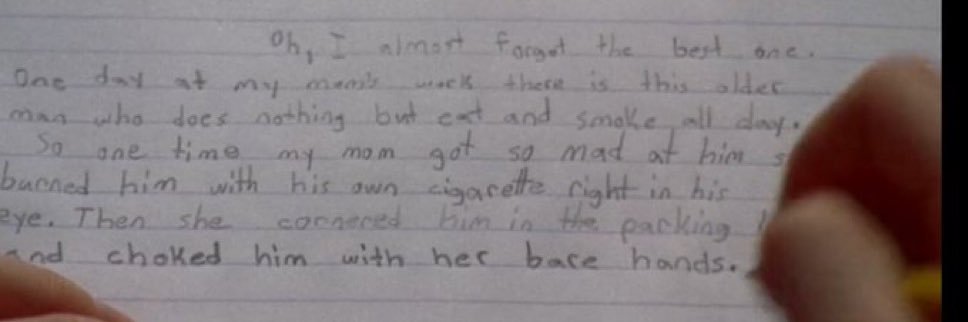 Oh, I almost forgot the best one.
One day at my mom's work there is this older
man who does nothing but eat and smoke all day.
So one time my mom got so mad at him
burned him with his own cigarette right in his
eye. Then she cornered him in the parking
and choked him with her bare hands.